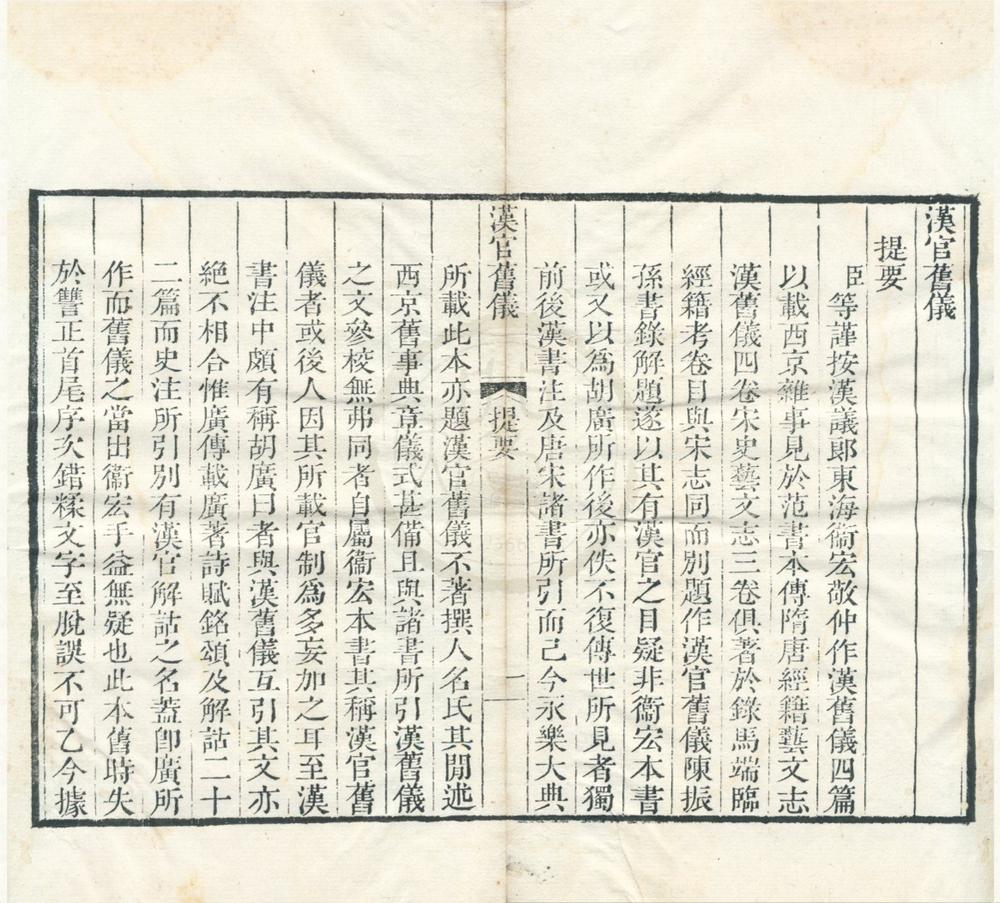 漢官舊儀
提要
臣等謹按漢議郞東海衞宏敬仲作漢舊儀四篇
以載西京雜事見於范書本傳隋唐經籍藝文志
漢舊儀四卷宋史藝文志三卷俱著於錄馬端臨
經籍考卷目與宋志同而別題作漢官舊儀陳振
孫書錄解題遂以其有漢官之目疑非衞宏本書
或又以爲胡廣所作後亦佚不復傳世所見者獨
前後漢書注及唐宋諸書所引而已今永樂大典
漢官舊儀 提要 一
所載此本亦題漢官舊儀不著撰人名氏其閒述
西京舊事典章儀式甚備且與諸書所引漢舊儀
之文參校無弗同者自屬衞宏本書其稱漢官舊
儀者或後人因其所載官制爲多妄加之耳至漢
書注中頗有稱胡廣曰者與漢舊儀互引其文亦
絶不相合惟廣傳載廣著詩賦銘頌及解詁二十
二篇而史注所引別有漢官解詁之名蓋卽廣所
作而舊儀之當出衞宏手益無疑也此本舊時失
於讐正首尾序次錯糅文字至脫誤不可乙今據